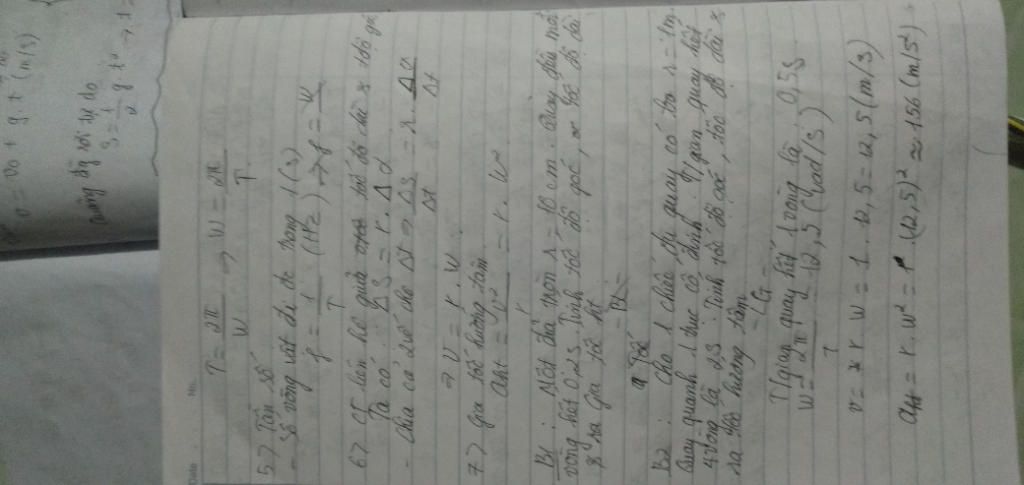 v = v₀ + g t (m/s)
Đường đi rơi tự do
S = 1/2 g.t²
Date No.
T = 2π/W → W = 2π/T
5> Tần số
- Số vòng vật đi đc trong 1(s)
f = 1/T (Hz) → f = W/2π
6> CT liên hệ giữa tốc độ dài & tốc độ góc
Ta có: ΔS = r.Δα
- Chia cả 2 vế cho Δt ⇒ ΔS/Δt = r. Δα/Δt
⇒ V = r.W
7> gia tốc hướng tâm
aht = v²/r = r.W²
B1: Một đĩa tròn r = 10 cm. Quay đều mỗi
vòng hết 0,2s. Tính tốc độ góc, tốc độ dài
& gia tốc ht
B2: Cho 1 chiếc đu quay có r = 1m.
Quay quanh 1 trục cố định. T/gian quay hết
4 vòng là 2s. Tính tốc độ góc, tốc độ dài &
gia tốc hướng tâm
- G -
T/gian quay hết 1 vòng là: 0,5s
W = 2π/T = 12,5 (rad/s)
v = r W = 1 . 12,5 = 12,5 (m/s)
aht = r.W² = 1.(12,5)² ≈ 156 (m/s²)